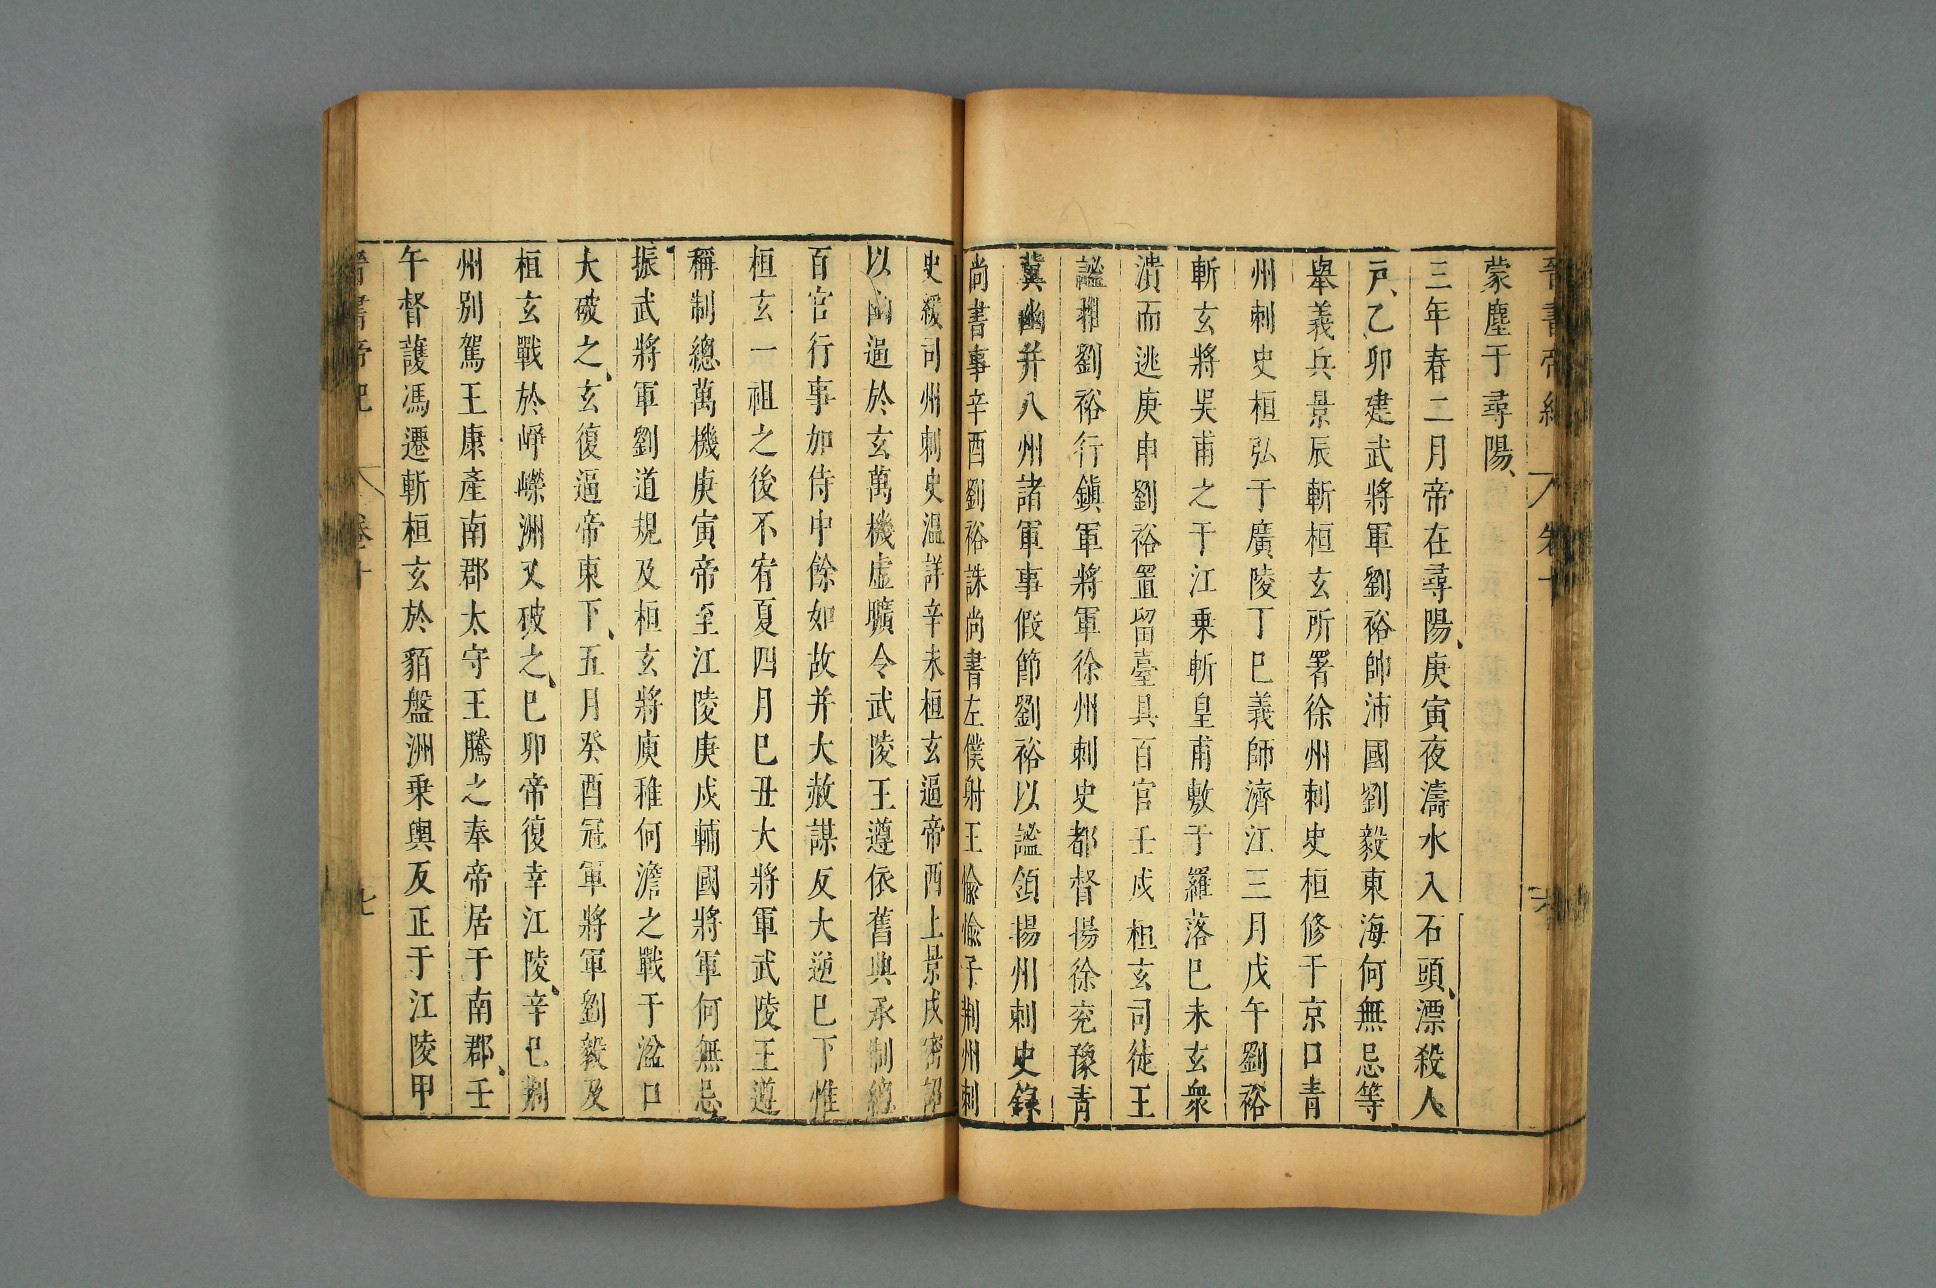 晉書帝紀 卷十 六
蒙塵于尋陽
三年春二月帝在尋陽庚寅夜濤水入石頭漂殺人
戸乙卯建武將軍劉裕帥沛國劉毅東海何無忌等
舉義兵景辰斬桓玄所署徐州刺史桓修于京口青
州刺史桓弘于廣陵丁巳義師濟江三月戊午劉裕
斬玄將吴甫之于江乗斬皇甫敷于羅落巳未玄衆
潰而逃庚申劉裕置留臺具百官壬戌桓玄司徒王
謐推劉裕行鎭軍將軍徐州刺史都督揚徐兖豫青
冀幽并八州諸軍事假節劉裕以謐領揚州刺史錄
尚書事辛酉劉裕誅尚書左僕射王愉愉子荆州刺
史綏司州刺史温詳辛未桓玄逼帝西上景戌密詔
以幽逼於玄萬機虚曠令武陵王遵依舊典承制總
百官行事加侍中餘如故并大赦謀反大逆巳下惟
桓玄一祖之後不宥夏四月巳丑大將軍武陵王遵
稱制總萬機庚寅帝至江陵庚戌輔國將軍何無忌
振武將軍劉道規及桓玄將庾稚何澹之戰于湓口
大破之玄復逼帝東下五月癸酉冠軍將軍劉毅及
桓玄戰於崢嶸洲又破之巳卯帝復幸江陵辛巳荆
州别駕王康產南郡太守王騰之奉帝居于南郡壬
午督護馮遷斬桓玄於貊盤洲乗輿反正于江陵甲
晉書帝紀 卷十 七